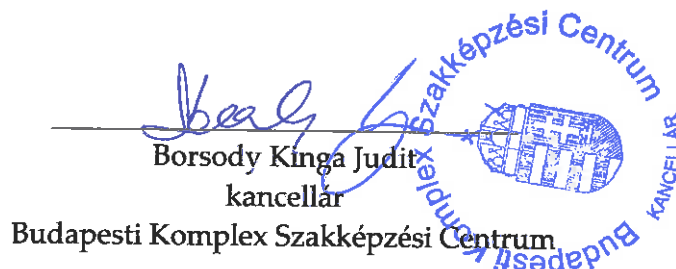 Borsody Kinga Judit
kancellár
Budapesti Komplex Szakképzési Centrum
Budapesti Komplex Szakképzési Centrum
KANCELLÁR